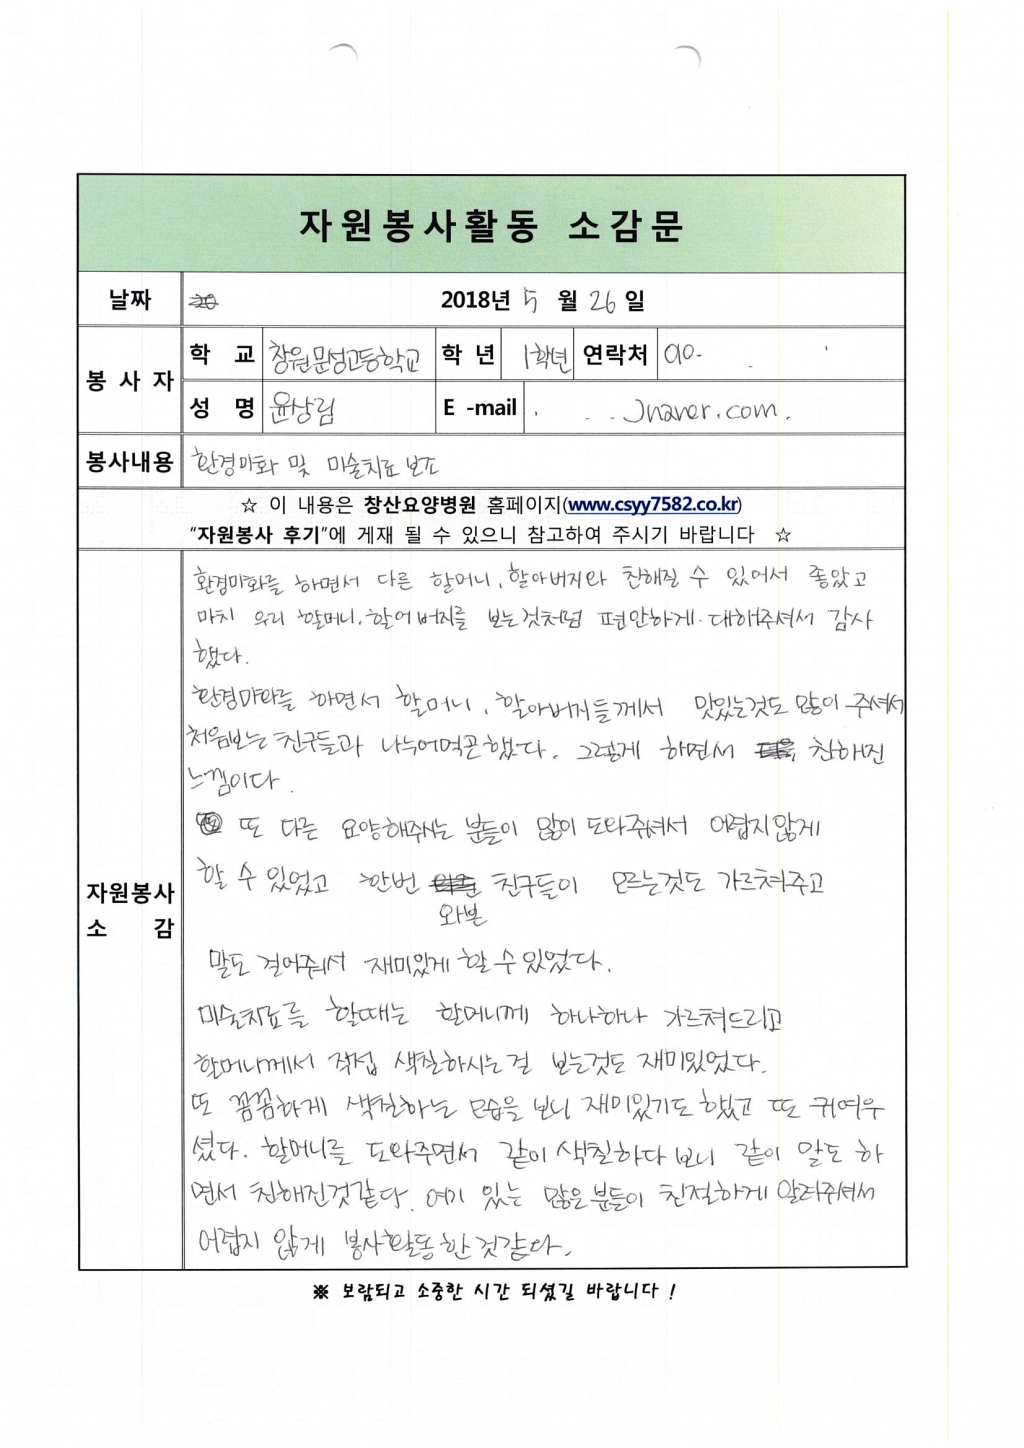 자원봉사활동 소감문
날짜 2018년 5 월 26 일
봉사자 학 교 창원문성고등학교 학 년 1학년 연락처 010-
성 명 윤상림 E -mail naver.com.
봉사내용 환경미화 및 미술치료 보조
☆ 이 내용은 창산요양병원 홈페이지(www.csyy7582.co.kr)
“자원봉사 후기”에 게재 될 수 있으니 참고하여 주시기 바랍니다 ☆
자원봉사
소 감
환경미화를 하면서 다른 할머니, 할아버지와 친해질 수 있어서 좋았고
마치 우리 할머니, 할어버지를 보는것처럼 편안하게 대해주셔서 감사
했다.
환경미화를 하면서 할머니, 할아버지들께서 맛있는것도 많이 주셔서
처음보는 친구들과 나누어먹곤했다. 그렇게 하면서 친해진
느낌이다.
또 다른 요양해주시는 분들이 많이 도와주셔서 어렵지않게
할 수 있었고 한번 와본 친구들이 모르는것도 가르쳐주고
말도 걸어줘서 재미있게 할 수 있었다.
미술치료를 할때는 할머니께 하나하나 가르쳐드리고
할머니께서 직접 색칠하시는걸 보는것도 재미있었다.
또 꼼꼼하게 색칠하는 모습을 보니 재미있기도 했고 또 귀여우
셨다. 할머니를 도와주면서 같이 색칠하다 보니 같이 말도 하
면서 친해진것같다. 여기 있는 많은분들이 친절하게 알려주셔서
어렵지 않게 봉사활동 한것같다.
※ 보람되고 소중한 시간 되셨길 바랍니다 !